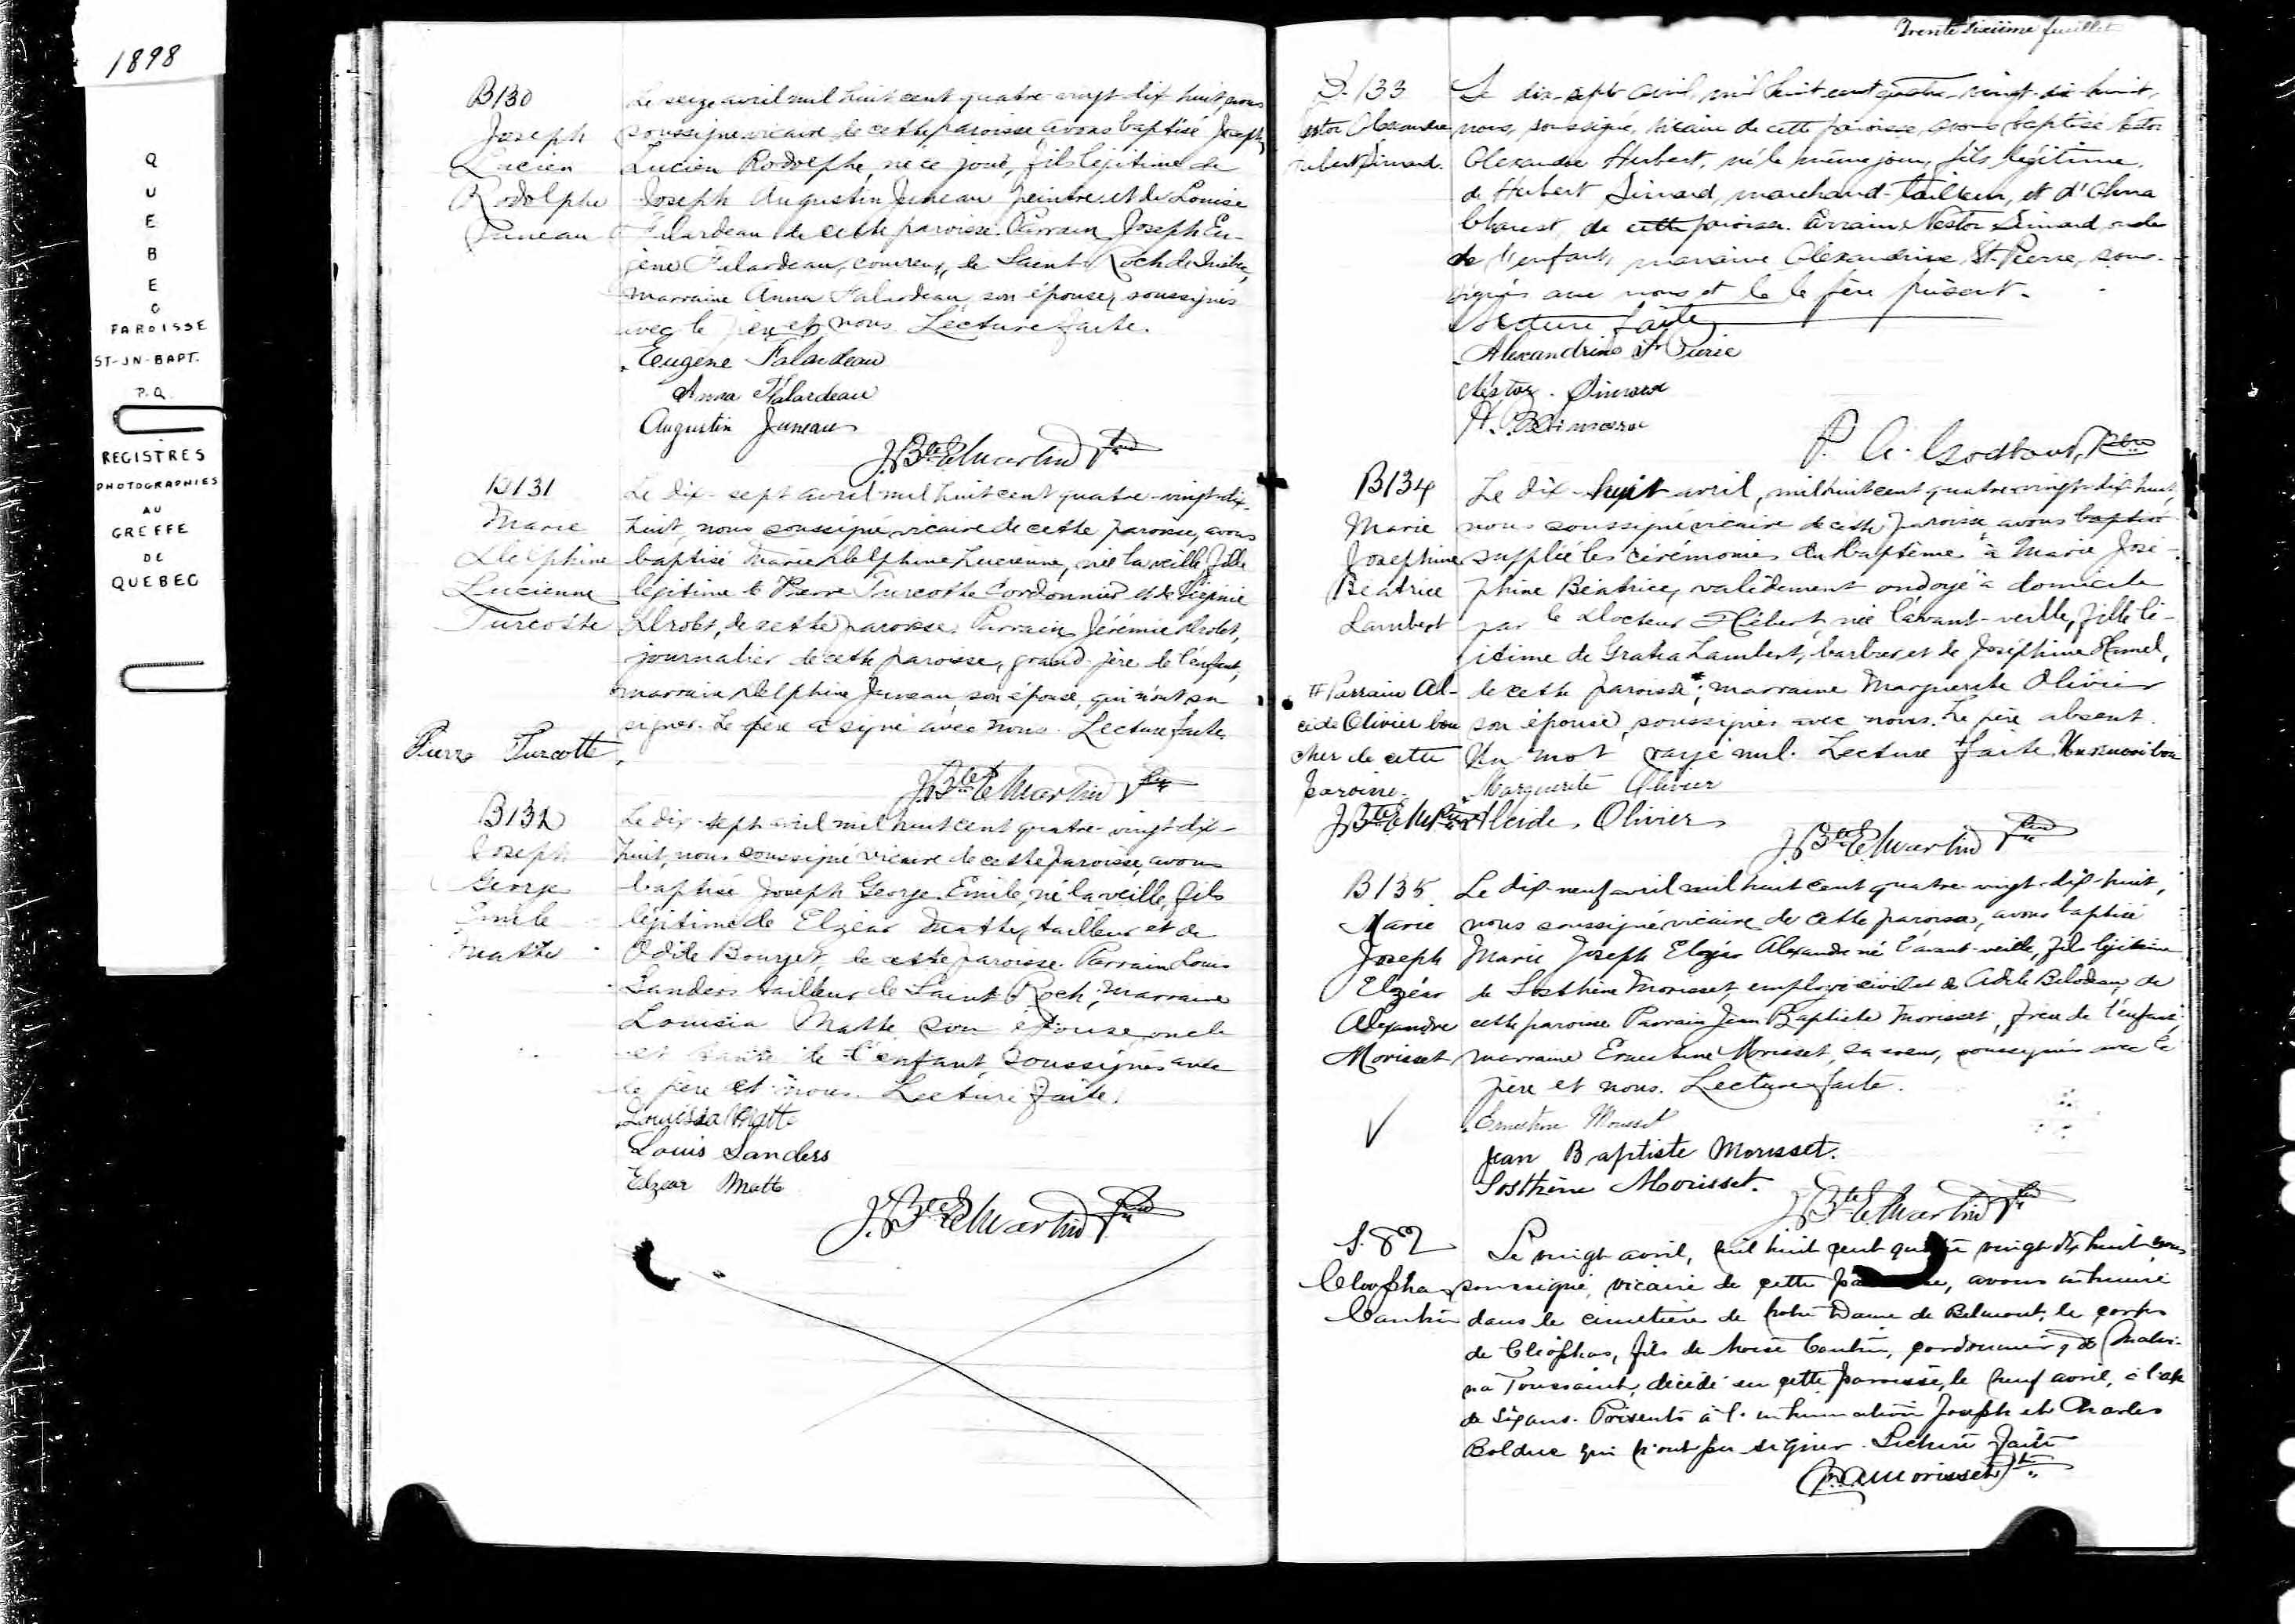 1898
QUEBEC
PAROISSE
ST-JN-BAPT.
P.Q.
REGISTRES
PHOTOGRAPHIES
AU
GREFFE
DE
QUEBEC
B130
Joseph
Lucien
Rodolphe
Juneau
Le seize avril mil huit cent quatre-vingt-dix-huit, nous
soussigné vicaire de cette paroisse, avons baptisé Joseph
Lucien Rodolphe, né ce jour, fils légitime de
Joseph Augustin Juneau peintre et de Louise
Falardeau de cette paroisse. Parrain Joseph Eu-
gène Falardeau, de Saint-Roch de Québec,
marraine Anna Falardeau, son épouse, soussignés
avec le père et nous. Lecture faite.
Eugène Falardeau
Anna Falardeau
Augustin Juneau
J. Bte E Martin Ptre
B131
Marie
Delphine
Lucienne
Turcotte
Le dix-sept avril mil huit cent quatre-vingt-dix-
huit, nous soussigné vicaire de cette paroisse, avons
baptisé Marie Delphine Lucienne, née la veille, fille
légitime de Pierre Turcotte Cordonnier et de Virginie
Drolet, de cette paroisse. Parrain Jérémie Drolet,
journalier de cette paroisse, grand-père de l'enfant,
marraine Delphine Juneau, son épouse, qui n'ont su
signer. Le père a signé avec nous. Lecture faite.
Pierre Turcotte
J. Bte E Martin Ptre
B132
Joseph
George
Emile
Matte
Le dix-sept avril mil huit cent quatre-vingt-dix-
huit, nous soussigné vicaire de cette paroisse, avons
baptisé Joseph George Emile, né la veille, fils
légitime de Elzéar Matte, tailleur et de
Odile Bourget, de cette paroisse. Parrain Louis
Sanders tailleur de Saint Roch; marraine
Louisia Matte son épouse, oncle
et tante de l'enfant, soussignés avec
le père et nous. Lecture faite.
Louisia Matte
Louis Sanders
Elzear Matte
J. Bte E Martin Ptre
Trente sixième feuillet
B. 133
Nestor Alexandre
Hubert Simard.
Le dix-sept avril, mil huit cent quatre-vingt-dix-huit,
nous, soussigné, vicaire de cette paroisse, avons baptisé Nestor
Alexandre Hubert, né le même jour, fils légitime,
de Hubert Simard, marchand-tailleur, et d'Alma
de cette paroisse. Parrain Nestor Simard, oncle
de l'enfant, marraine Alexandrine St-Pierre, sous-
signés avec nous et le le père présent.
Lecture faite.
Alexandrine St Pierre
Nestor Simard
H. Simard
P. A. Godbout, Ptre
B134
Marie
Josephine
Béatrice
Lambert
Le dix-huit avril, mil huit cent quatre-vingt-dix-huit,
nous soussigné vicaire de cette paroisse avons baptisé
suppléé les cérémonies du baptême à Marie José-
phine Béatrice, validement ondoyé à domicile
par le Docteur Hébert, née l'avant-veille, fille lé-
gitime de Gratia Lambert, barbier et de Joséphine Hamel,
de cette paroisse #; marraine Marguerite Olivier
son épouse, soussignés avec nous. Le père absent.
Un mot rayé nul. Lecture faite. Un renvoi bon
# Parrain Al-
cide Olivier bou
cher de cette
paroisse.
Marguerite Olivier
Alcide Olivier
J. Bte E Martin Ptre
B135
Marie
Joseph
Elzéar
Alexandre
Morisset
Le dix-neuf avril mil huit cent quatre-vingt-dix-huit,
nous soussigné vicaire de cette paroisse, avons baptisé
Marie Joseph Elzéar Alexandre né l'avant-veille, fils légitime
de Sosthène Morisset, employé civil et de Adèle Bilodeau, de
cette paroisse Parrain Jean Baptiste Morisset, frère de l'enfant;
marraine Ernestine Morisset, sa soeur, soussignés avec le
père et nous. Lecture faite.
Ernestine Morisset
Jean Baptiste Morisset.
Sosthène Morisset.
J. Bte E Martin Ptre
S. 82
Cléophas
Cantin
Le vingt avril, mil huit cent quatre vingt dix huit nous
soussigné, vicaire de cette paroisse, avons inhumé
dans le cimetière de Notre Dame de Belmont, le corps
de Cléophas, fils de Moïse Cantin, cordonnier, & de Malvi-
na Toussaint, décédé en cette paroisse, le neuf avril, à l'age
de six ans. Présents à l'inhumation Joseph et Charles
Bolduc qui n'ont pu signer. Lecture faite
Morisset Ptre